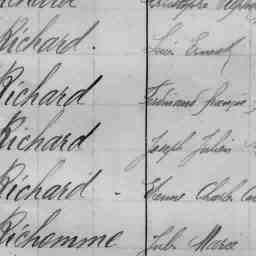 Richard Christophe
Richard. Louis Ernest
Richard Ferdinand François
Richard Joseph Julien
Richard - Etienne Charles
Richomme Jules Marie